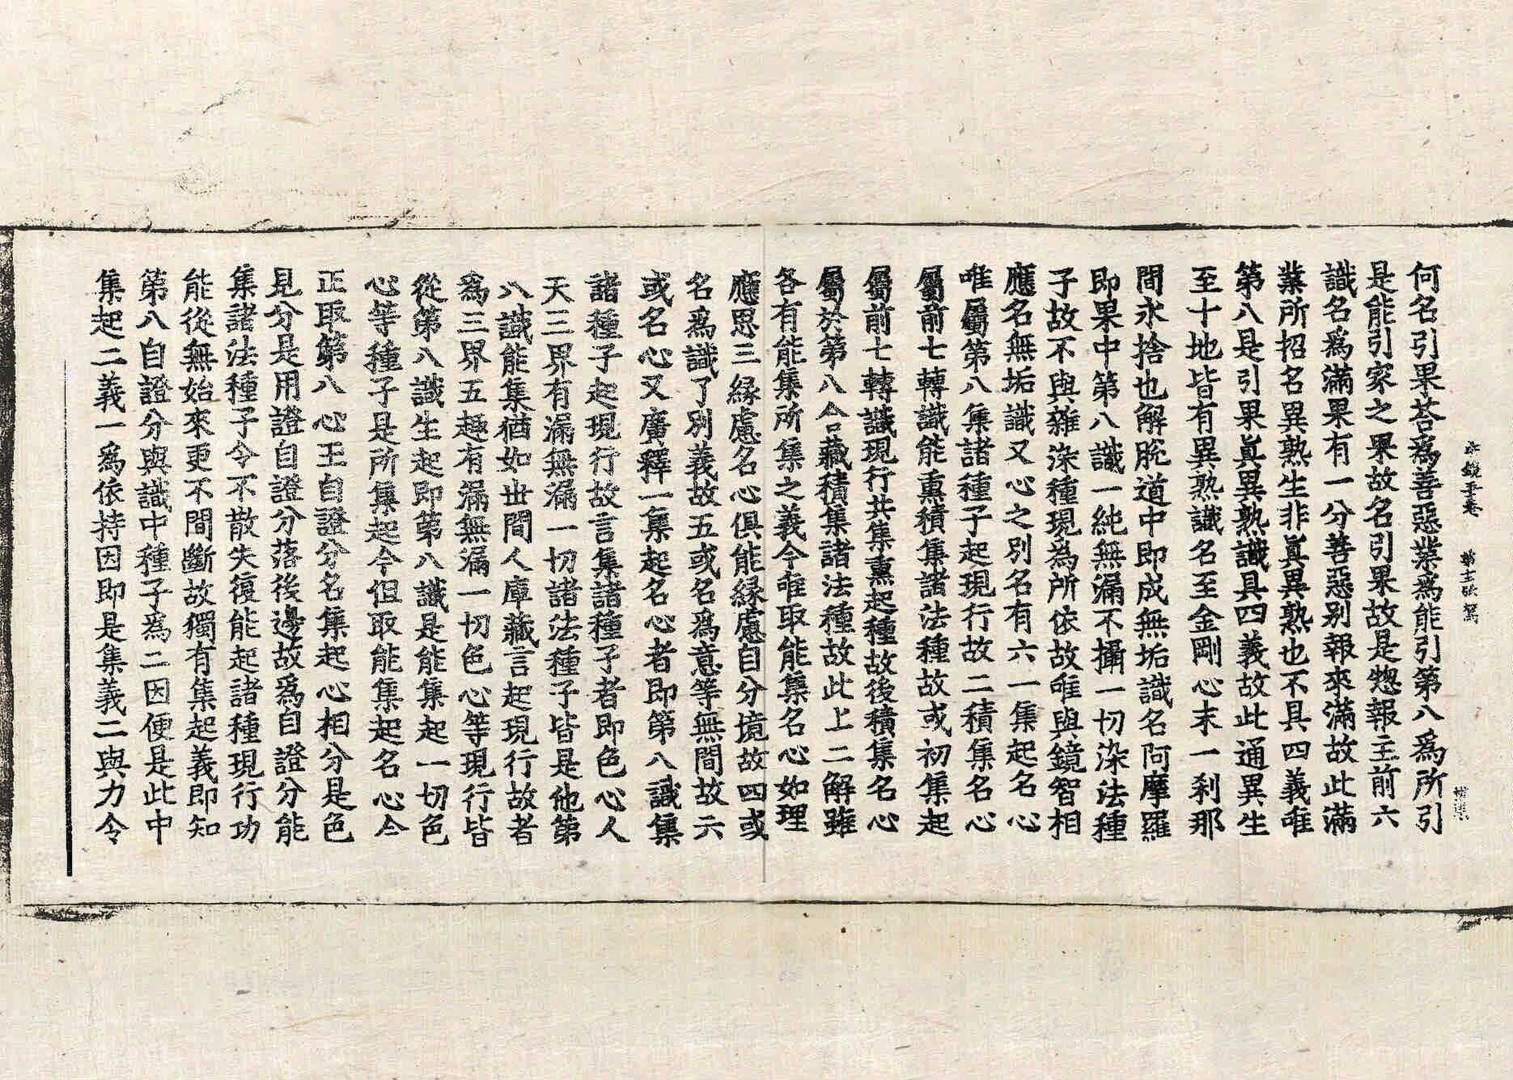 宗鏡五卷　第十三張　溎
何名引果荅爲善惡業爲能引第八爲所引
是能引家之果故名引果故是惣報主前六
識名爲滿果有一分善惡别報來滿故此滿
業所招名異熟生非眞異熟也不具四義唯
第八是引果眞異熟識具四義故此通異生
至十地皆有異熟識名至金剛心末一刹那
間永捨也解脫道中即成無垢識名阿摩羅
即果中第八識一純無漏不攝一切染法種
子故不與雜染種現爲所依故唯與鏡智相
應名無垢識又心之別名有六一集起名心
唯屬第八集諸種子起現行故二積集名心
屬前七轉識能熏積集諸法種故或初集起
屬前七轉識現行共集熏起種故後積集名心
屬於第八含藏積集諸法種故此上二解雖
各有能集所集之義今唯取能集名心如理
應思三緣慮名心俱能緣慮自分境故四或
名爲識了別義故五或名爲意等無間故六
或名心又廣釋一集起名心者即第八識集
諸種子起現行故言集諸種子者即色心人
天三界有漏無漏一切諸法種子皆是他第
八識能集猶如世間人庫藏言起現行故者
爲三界五趣有漏無漏一切色心等現行皆
從第八識生起即第八識是能集起一切色
心等種子是所集起今但取能集起名心今
正取第八心王自證分名集起心相分是色
見分是用證自證分落後邊故爲自證分能
集諸法種子令不散失復能起諸種現行功
能從無始來更不間斷故獨有集起義即知
第八自證分與識中種子爲二因便是此中
集起二義一爲依持因即是集義二與力令